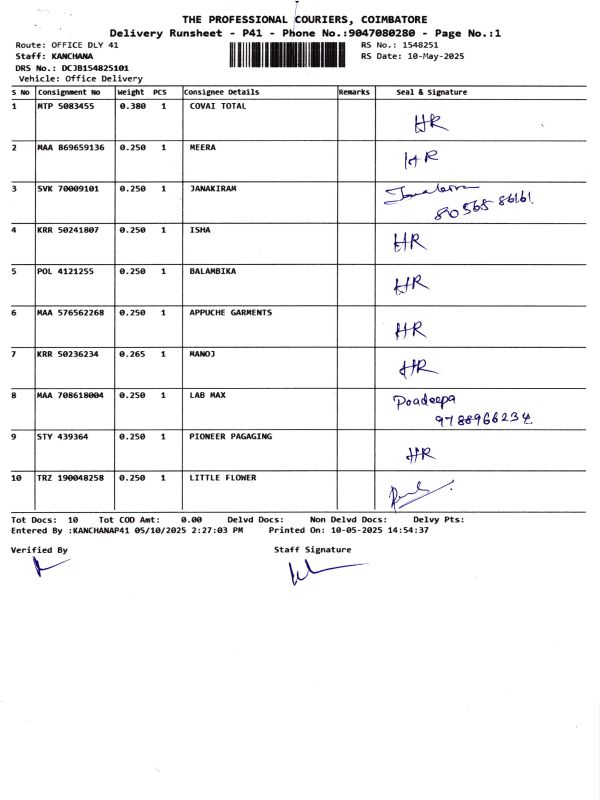 THE PROFESSIONAL COURIERS, COIMBATORE
Delivery Runsheet - P41 - Phone No.:9047080280 - Page No.:1
Route: OFFICE DLY 41 RS No.: 1548251
Staff: KANCHANA RS Date: 10-May-2025
DRS No.: DCJB154825101
Vehicle: Office Delivery
S No Consignment No Weight PCS Consignee Details Remarks Seal & Signature
1 MTP 5083455 0.380 1 COVAI TOTAL HR
2 MAA 869659136 0.250 1 MEERA HR
3 SVK 70009101 0.250 1 JANAKIRAM
80568 86161
4 KRR 50241807 0.250 1 ISHA HR
5 POL 4121255 0.250 1 BALAMBIKA HR
6 MAA 576562268 0.250 1 APPUCHE GARMENTS HR
7 KRR 50236234 0.265 1 MANOJ HR
8 MAA 708618004 0.250 1 LAB MAX Poadeepa
9788966234
9 STY 439364 0.250 1 PIONEER PAGAGING HR
10 TRZ 190048258 0.250 1 LITTLE FLOWER
Tot Docs: 10 Tot COD Amt: 0.00 Delvd Docs: Non Delvd Docs: Delvy Pts:
Entered By :KANCHANAP41 05/10/2025 2:27:03 PM Printed On: 10-05-2025 14:54:37
Verified By Staff Signature